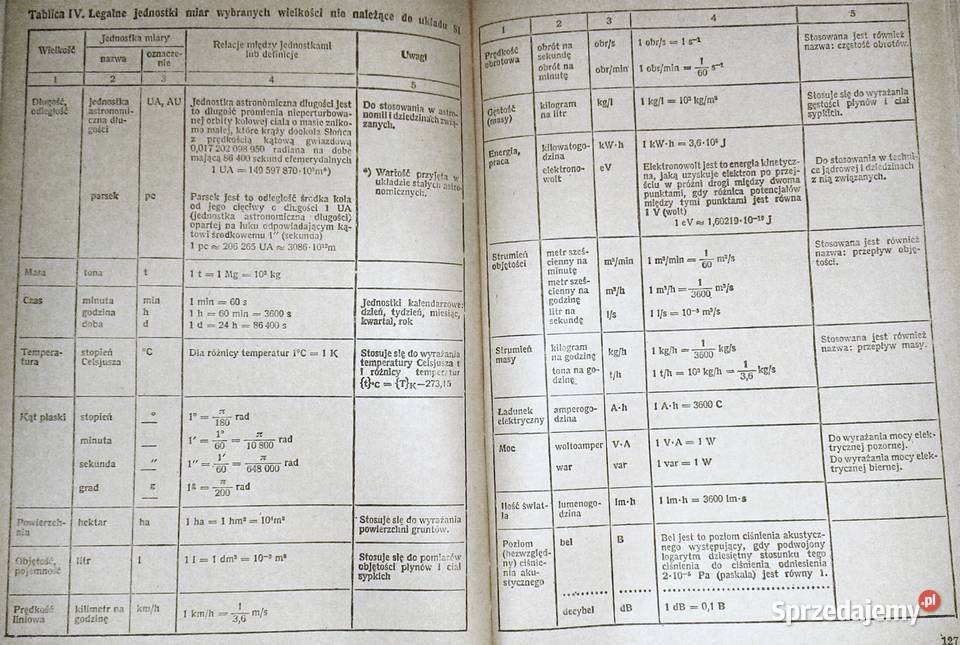 Tablica IV. Legalne jednostki miar wybranych wielkości nie należące do układu SI
Wielkość
Jednostka miary
nazwa
oznacze-
nie
Relacje między jednostkami
lub definicje
Uwagi
1 2 3 4 5
Długość,
odległość
jednostka
astronomi-
czna dłu-
gości
UA, AU
Jednostka astronomiczna długości jest
to długość promienia nieperturbowa-
nej orbity kołowej ciała o masie zniko-
mo małej, które krąży dookoła Słońca
z prędkością kątową gwiazdową
0,017 202 098 950 radiana na dobę
mającą 86 400 sekund efemerydalnych
1 UA = 149 597 870·10³m*)
Do stosowania w astro-
nomii i dziedzinach zwią-
zanych.
*) Wartość przyjęta w
układzie stałych astro-
nomicznych.
parsek
pc
Parsek jest to odległość środka koła
od jego cięciwy o długości 1 UA
(jednostka astronomiczna długości)
opartej na łuku odpowiadającym ką-
towi środkowemu 1″ (sekunda)
1 pc ≈ 206 265 UA ≈ 3086·10¹³m
Masa tona t 1 t = 1 Mg = 10³ kg
Czas minuta min 1 min = 60 s
godzina h 1 h = 60 min = 3600 s
doba d 1 d = 24 h = 86 400 s
Jednostki kalendarzowe:
dzień, tydzień, miesiąc,
kwartał, rok
Tempera-
tura
stopień
Celsjusza
°C
Dla różnicy temperatur 1°C = 1 K
Stosuje się do wyrażania
temperatury Celsjusza t
i różnicy temperatur
{t}°C = {T}K—273,15
Kąt płaski stopień ° 1° = π/180 rad
minuta ′ 1′ = 1°/60 = π/10 800 rad
sekunda ″ 1″ = 1′/60 = π/648 000 rad
grad g 1g = π/200 rad
Powierzch-
nia
hektar ha 1 ha = 1 hm² = 10⁴m²
Stosuje się do wyrażania
powierzchni gruntów.
Objętość,
pojemność
litr l 1 l = 1 dm³ = 10⁻³ m³
Stosuje się do pomiarów
objętości płynów i ciał
sypkich
Prędkość
liniowa
kilometr na
godzinę
km/h 1 km/h = 1/3,6 m/s
1 2 3 4 5
Prędkość
obrotowa
obrót na
sekundę
obr/s 1 obr/s = 1 s⁻¹
obrót na
minutę
obr/min 1 obr/min = 1/60 s⁻¹
Stosowana jest również
nazwa: częstość obrotów.
Gęstość
(masy)
kilogram
na litr
kg/l 1 kg/l = 10³ kg/m³
Stosuje się do wyrażania
gęstości płynów i ciał
sypkich.
Energia,
praca
kilowatogo-
dzina
kW·h 1 kW·h = 3,6·10⁶ J
elektrono-
wolt
eV
Elektronowolt jest to energia kinetycz-
na, jaką uzyskuje elektron po przej-
ściu w próżni drogi między dwoma
punktami, gdy różnica potencjałów
między tymi punktami jest równa
1 V (wolt)
1 eV ≈ 1,60219·10⁻¹⁹ J
Do stosowania w techni-
ce jądrowej i dziedzinach
z nią związanych.
Strumień
objętości
metr sześ-
cienny na
minutę
m³/min 1 m³/min = 1/60 m³/s
metr sześ-
cienny na
godzinę
m³/h 1 m³/h = 1/3600 m³/s
litr na
sekundę
l/s 1 l/s = 10⁻³ m³/s
Stosowana jest również
nazwa: przepływ obję-
tości.
Strumień
masy
kilogram
na godzinę
kg/h 1 kg/h = 1/3600 kg/s
tona na go-
dzinę
t/h 1 t/h = 10³ kg/h = 1/3,6 kg/s
Stosowana jest również
nazwa: przepływ masy.
Ładunek
elektryczny
amperogo-
dzina
A·h 1 A·h = 3600 C
Moc woltoamper V·A 1 V·A = 1 W
war var 1 var = 1 W
Do wyrażania mocy elek-
trycznej pozornej.
Do wyrażania mocy elek-
trycznej biernej.
Ilość świat-
ła
lumenogo-
dzina
lm·h 1 lm·h = 3600 lm·s
Poziom
(bezwzględ-
ny) ciśnie-
nia aku-
stycznego
bel B
Bel jest to poziom ciśnienia akustycz-
nego występujący, gdy podwojony
logarytm dziesiętny stosunku tego
ciśnienia do ciśnienia odniesienia
2·10⁻⁵ Pa (paskala) jest równy 1.
decybel dB 1 dB = 0,1 B
Sprzedajemy.pl
127